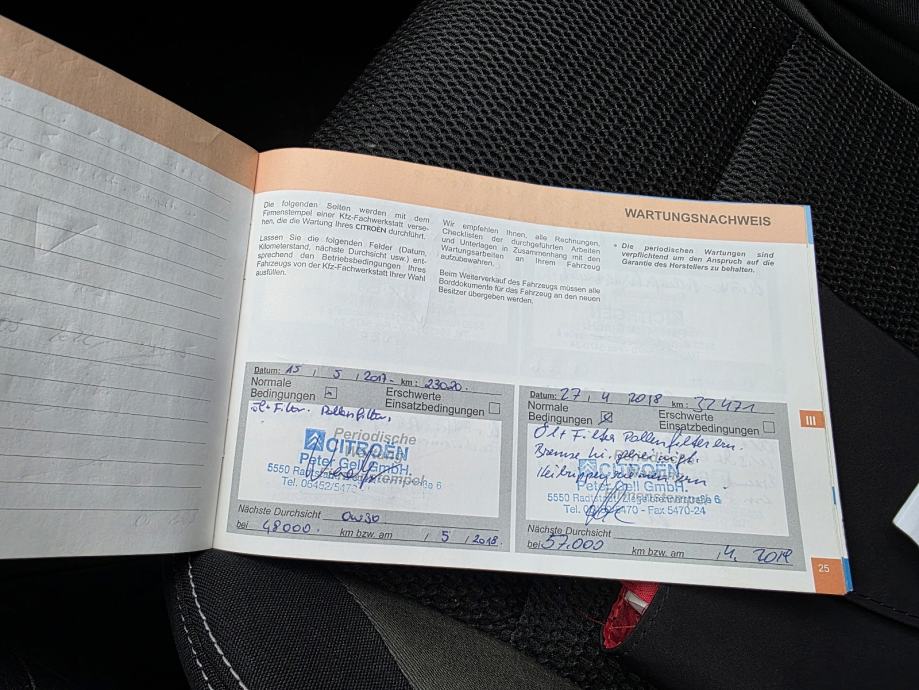 WARTUNGSNACHWEIS
Die folgenden Seiten werden mit dem
Firmenstempel einer Kfz-Fachwerkstatt verse-
hen, die die Wartung Ihres CITROËN durchführt.
Lassen Sie die folgenden Felder (Datum,
Kilometerstand, nächste Durchsicht usw.) ent-
sprechend den Betriebsbedingungen Ihres
Fahrzeugs von der Kfz-Fachwerkstatt Ihrer Wahl
ausfüllen.
Wir empfehlen Ihnen, alle Rechnungen,
Checklisten der durchgeführten Arbeiten
und Unterlagen in Zusammenhang mit den
Wartungsarbeiten an Ihrem Fahrzeug
aufzubewahren.
Beim Weiterverkauf des Fahrzeugs müssen alle
Borddokumente für das Fahrzeug an den neuen
Besitzer übergeben werden.
* Die periodischen Wartungen sind
verpflichtend um den Anspruch auf die
Garantie des Herstellers zu behalten.
Datum: 15 / 5 / 2017 km: 23020.
Normale
Bedingungen
Erschwerte
Einsatzbedingungen
Filter. Pollenfilter,
Periodische
CITROËN
Peter Gell GmbH.
5550 Radstadt, 6
Tel. 06452/5470
Nächste Durchsicht 0W30
bei 48000. km bzw. am / 5 / 2018.
Datum: 27 / 4 2018 km: 32471
Normale
Bedingungen
Erschwerte
Einsatzbedingungen
Öl + Filter Pollenfilter ern.
Bremse hi. gereinigt.
ern.
CITROËN
Peter Gell GmbH.
5550 Radstadt, Ziegelbrennerstraße 6
Tel. 5470 - Fax 5470-24
Nächste Durchsicht
bei 57.000 km bzw. am / 4. 2019
III
25